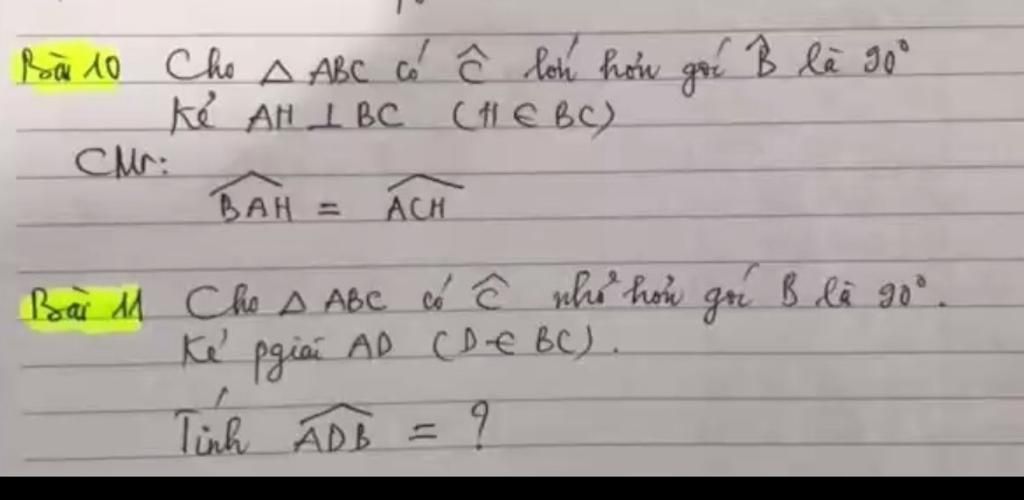 Bài 10 Cho △ ABC có Ĉ lớn hơn góc B̂ là 90°
Kẻ AH ⊥ BC (H ∈ BC)
CMr:
B̂AH = ÂCH
Bài 11 Cho △ ABC có Ĉ nhỏ hơn góc B là 90°.
Kẻ pgiác AD (D ∈ BC).
Tính ÂDB = ?